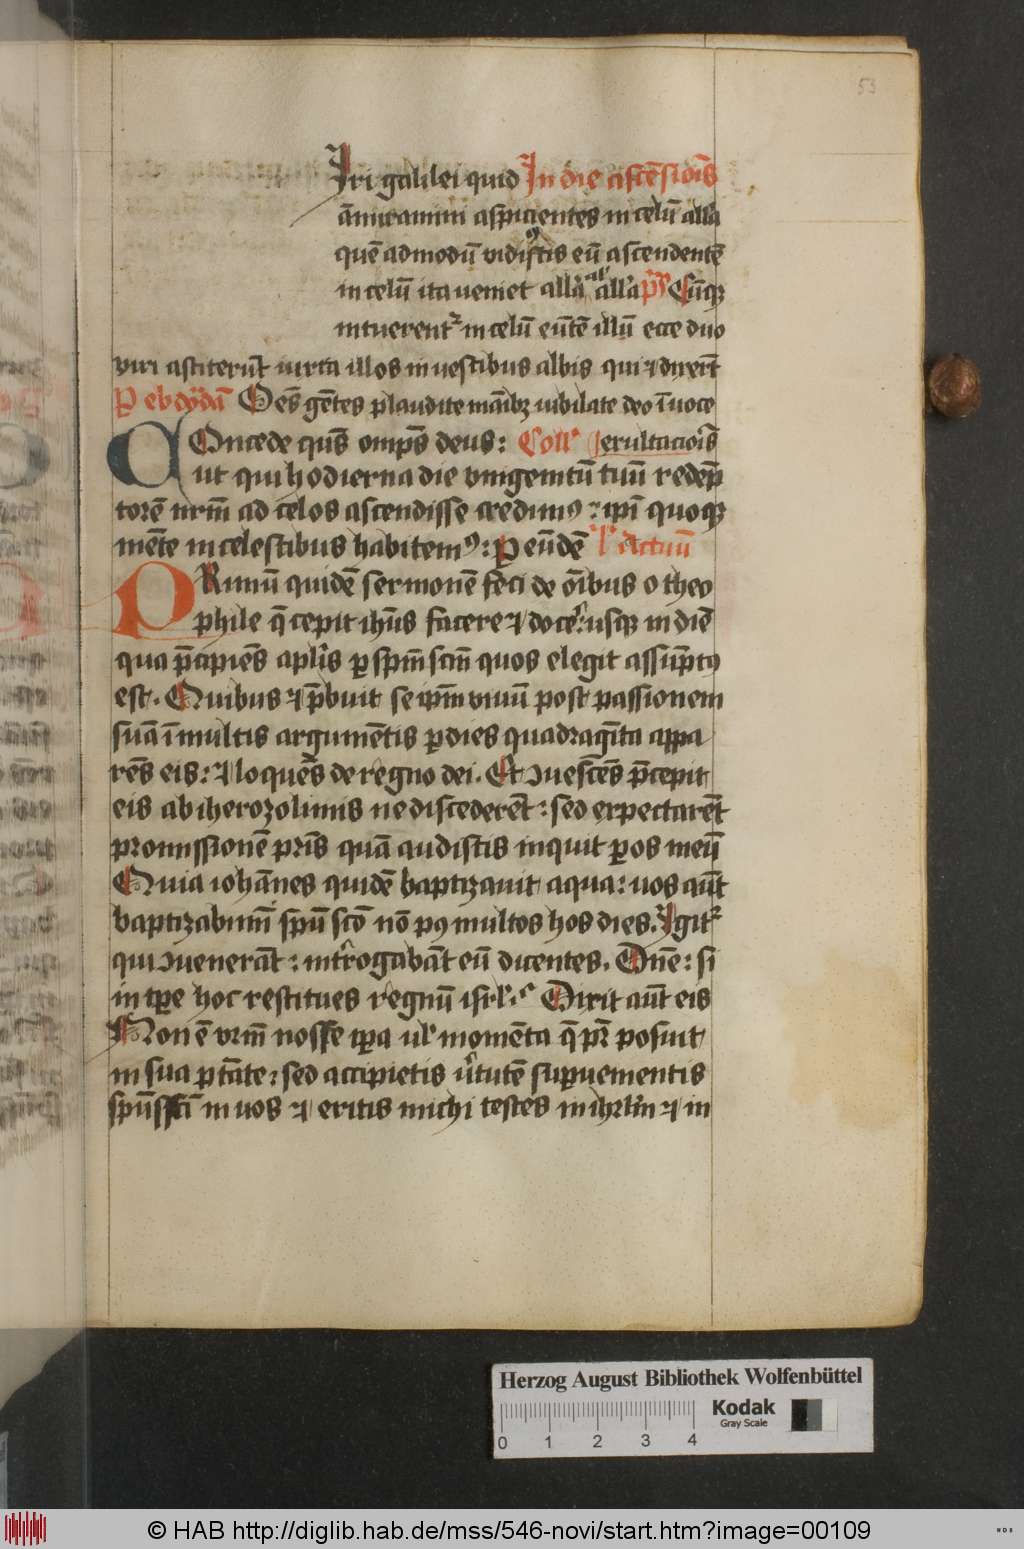 53
Iri galilei quid In die asce̅sio̅is
a̅miramini aspicientes in celu̅ all'a
que̅admodu̅ vidistis eu̅ ascendente̅
in celu̅ ita veniet all'a all'a ps Cu̅q
intuerent' in celu̅ eu̅te̅ illu̅ ecce duo
viri astiteru̅t iuxta illos in vestibus albis qui ⁊ dixeru̅t
Oe̅s ge̅tes plaudite ma̅ibz iubilate deo i̅ voce
COncede qs̅ omp̅s deus: Coll' exultacio̅is
ut qui hodierna die vnigenitu̅ tuu̅ rede̅p
tore̅ nr̅m ad celos ascendisse credimꝰ: ip̅i quoqꝫ
me̅te in celestibus habitemꝰ: P eu̅de̅ l' Actuu̅
PRimu̅ quide̅ sermone̅ feci de o̅ibus o theo
phile q̅ cepit ih̅s facere ⁊ doce': usqꝫ in die̅
qua p̅cipie̅s apl̅is ꝑ sp̅m sc̅m quos elegit assu̅ptꝰ
est. Quibus ⁊ p̅buit se ip̅m viuu̅ post passionem
sua̅ i̅ multis argume̅tis ꝑ dies quadragi̅ta appa
re̅s eis: ⁊ loque̅s de regno dei. Et ꝯuesce̅s p̅cepit
eis ab iherozolimis ne discedere̅t: sed expectare̅t
promissione̅ pr̅is qua̅ audistis inquit ꝑ os meu̅
Quia ioha̅nes quide̅ baptizauit aqua: uos au̅t
baptizabimi̅ spu̅ sc̅o no̅ pꝰ multos hos dies. Igit'
qui ꝯuenera̅t: int'rogaba̅t eu̅ dicentes. Dn̅e: si
in tꝑe hoc restitues regnu̅ isrl'. Dixit au̅t eis
Non e̅ vr̅m nosse tꝑa ul' mome̅ta q̅ pr̅ posuit
in sua pt̅ate: sed accipietis v'tute̅ suꝑuenientis
spu̅ssc̅i in uos ⁊ eritis michi testes in ihrl̅m ⁊ in
Herzog August Bibliothek Wolfenbüttel
Kodak
Gray Scale
0 1 2 3 4
© HAB http://diglib.hab.de/mss/546-novi/start.htm?image=00109